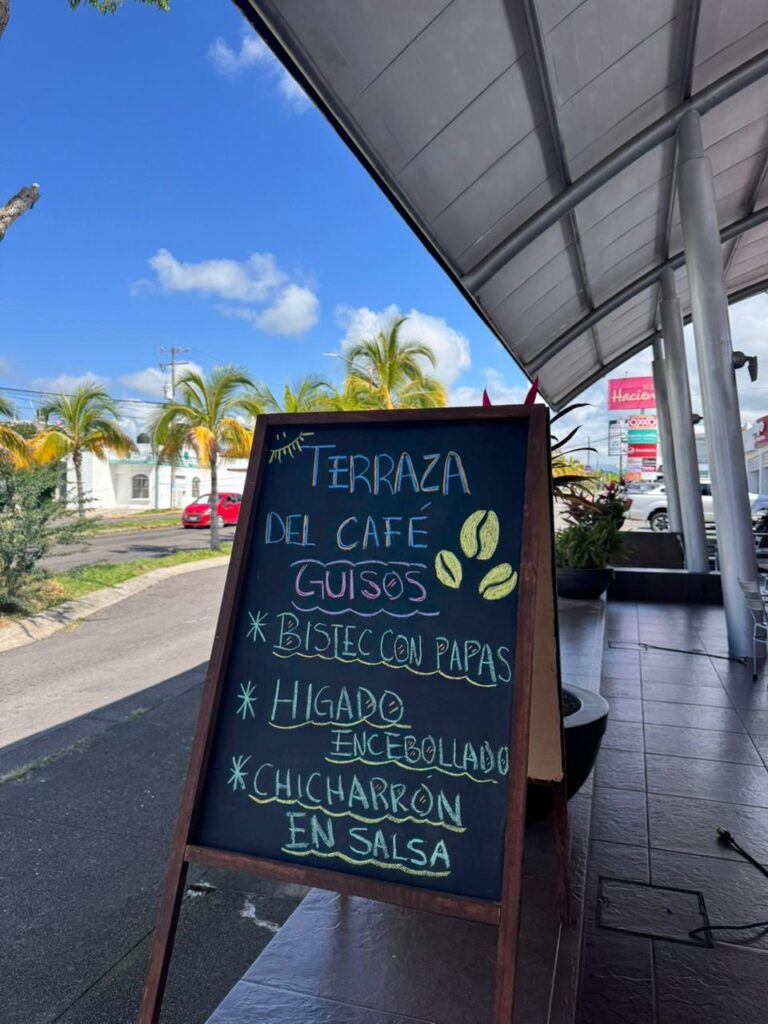 TERRAZA
DEL CAFÉ
GUISOS
* BISTEC CON PAPAS
* HIGADO
ENCEBOLLADO
* CHICHARRÓN
EN SALSA
OXXO